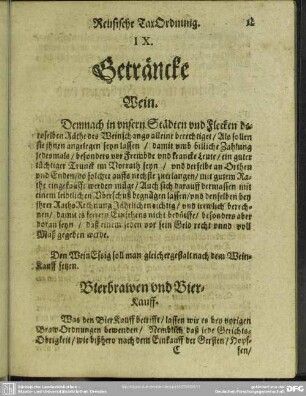 Reussische TaxOrdnung.
IX.
Geträncke
Wein.
Demnach in vnsern Städten vnd Flecken
deroselben Räthe des Weinschangs alleine berechtiget / Als sollen
sie ihnen angelegen seyn lassen / damit vmb billiche Zahlung
jedesmals / besonders vor Frembde vnd krancke Leute / ein guter
tüchtiger Trunck im Vorrath seyn / vnd derselbe an Orthen
vnd Enden / da solcher auffs nechste zuerlangen / mit gutem Rathe
eingekaufft werden möge / Auch sich darauff dermassen mit
einem leidlichen Vberschuß begnügen lassen / vnd denselben bey
ihrer RathsRechnung Jährlichen richtig / vnd trewlich berechnen /
damit es ferrern Einsehens nicht bedürffe / besonders aber
daran seyn / daß einem jeden vor sein Geld recht vnnd voll
Maß gegeben werde.
Den WeinEssig soll man gleichergestalt nach dem Wein-
Kauff setzen.
Bierbrawen vnd Bier-
Kauff.
Was den BierKauff betrifft / lassen wir es bey vorigen
Braw-Ordnungen bewenden / Nemblich daß jede Gerichts-
Obrigkeit / wie bißhero nach dem Einkauff der Gersten / Hopf-
C
fen /